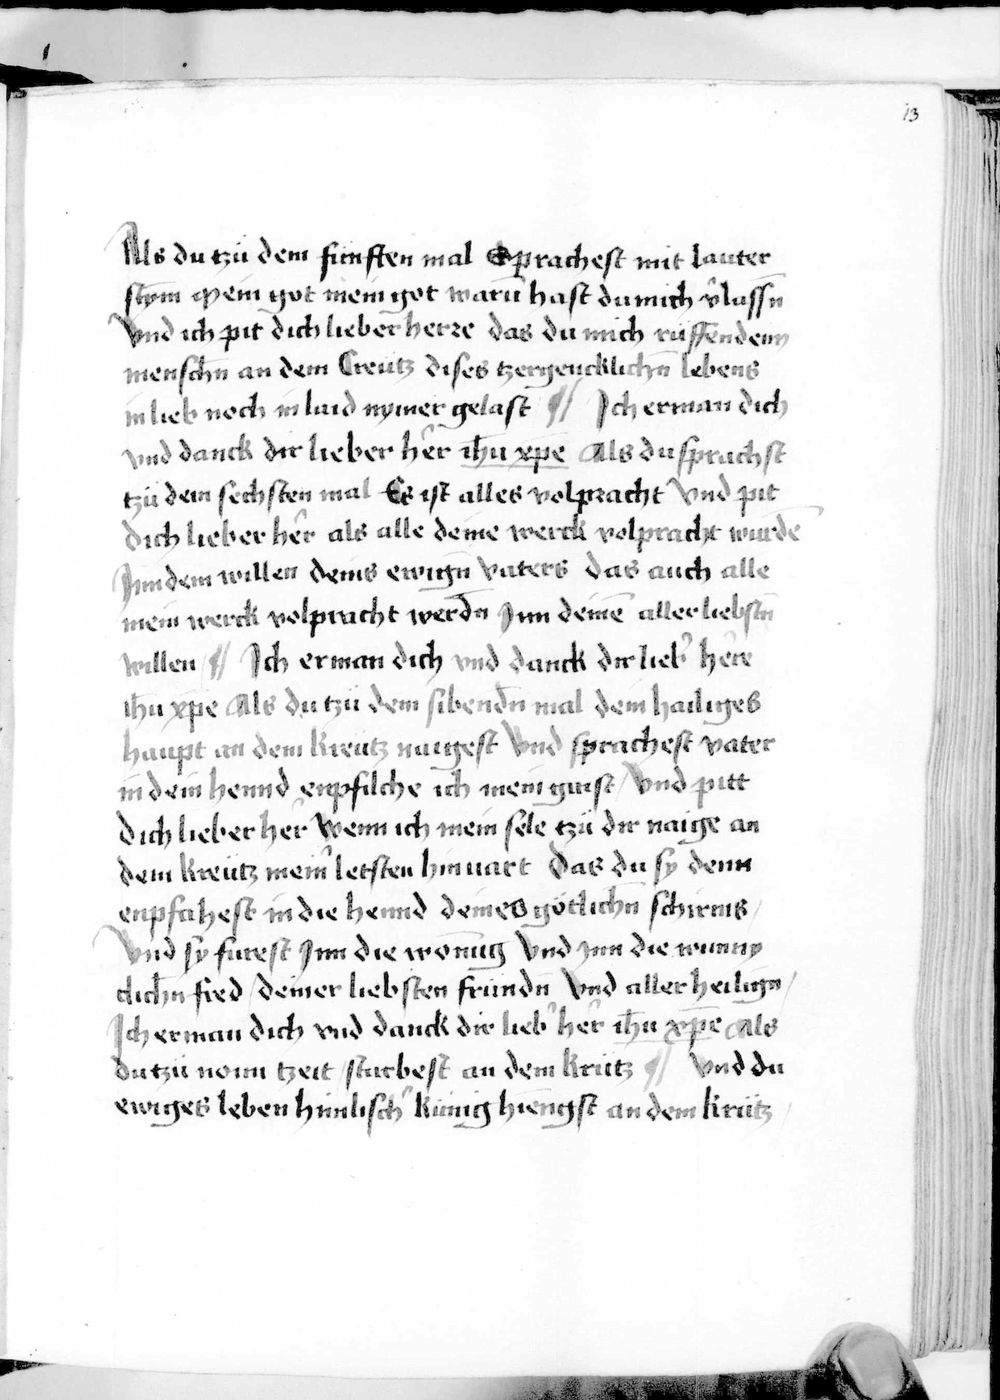 13
Als du tzü dem fünften mal Sprachest mit lauter
stym mein got mein got warū hast du mich v̂lassn̄
Vnd ich pit dich lieber herre das du mich rüffenden
menschn̄ an dem Creütz dises tzergencklichn̄ lebens
in lieb noch in laid nymer gelast ¶ Ich erman dich
vnd danck dir lieber hêr ih̄u xp̄e Als du sprachst
tzü dem sechsten mal Es ist alles volpracht Vnd pit
dich lieber hêr als alle deine werck volpracht wurdē
Inn dem willen deins ewign̄ vaters das auch alle
mein werck volpracht werdn̄ Inn deinē aller liebstn̄
willen ¶ Ich erman dich vnd danck dir lieb̂ hêre
ih̄u xp̄e Als du tzü dem sibendn̄ mal dein hailiges
haupt an dem kreütz naigest Vnd sprachest vater
in dein hennd enpfilche ich mein gaist / Vnd pitt
dich lieber hêr Wenn ich mein sele tzü dir naige an
dem kreütz mein̂ letsten hinuart das du sy denn
enpfahest in die hennd deines götlichn̄ schirms /
Vnd sy fürest Inn die wonūg Vnd Inn die wunny
clichn̄ fred / deiner liebsten fründn̄ Vnd aller heilign̄ /
Ich erman dich vnd danck dir lieb̂ hêr ih̄u xp̄e Als
du tzü nonn tzeit / starbest an dem krütz ¶ Vnd du
ewiges leben himliscĥ künig hiengst an dem krütz /